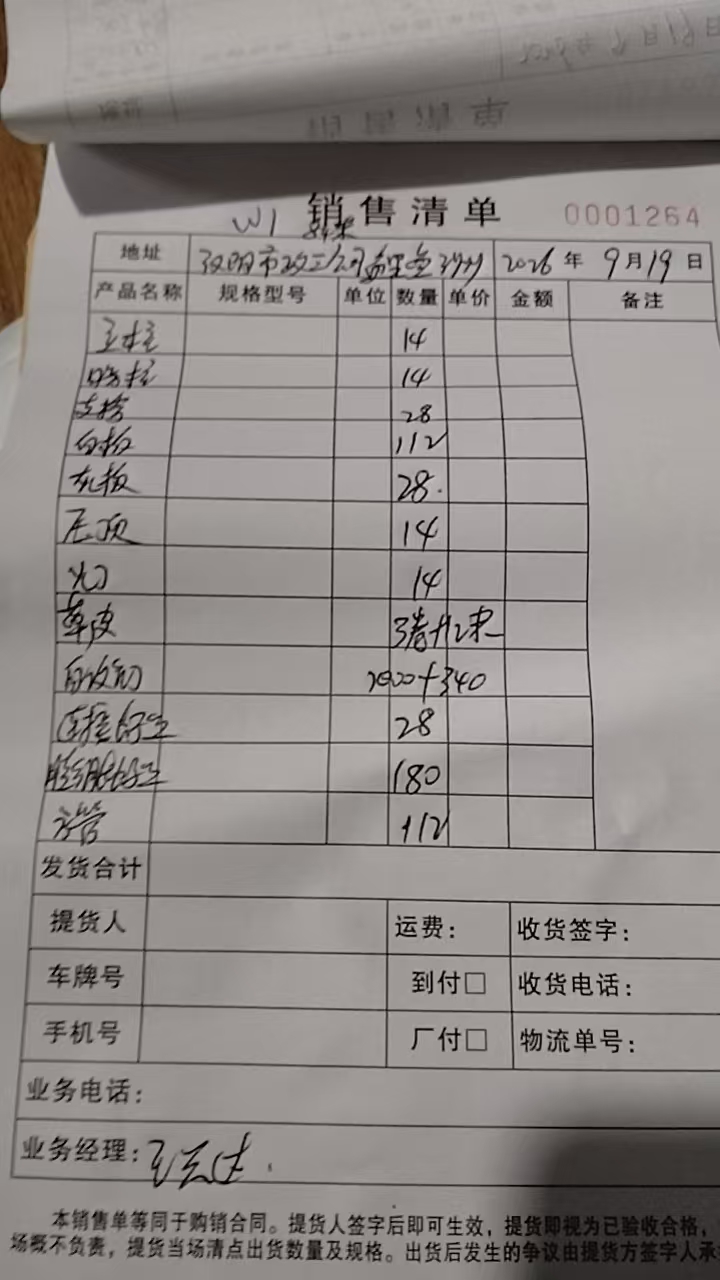 W1
销售清单 0001264
地址 汉阳市政工公司 2026年9月19日
产品名称 规格型号 单位 数量 单价 金额 备注
立柱 14
14
支撑 28
白板 112
灰板 28
尾顶 14
14
草皮 3卷+12束
自攻钉 2000+340
连接 28
膨胀 180
方管 112
发货合计
提货人 运费： 收货签字：
车牌号 到付□ 收货电话：
手机号 厂付□ 物流单号：
业务电话：
业务经理：
本销售单等同于购销合同。提货人签字后即可生效，提货即视为已验收合格，
场概不负责，提货当场清点出货数量及规格。出货后发生的争议由提货方签字人承